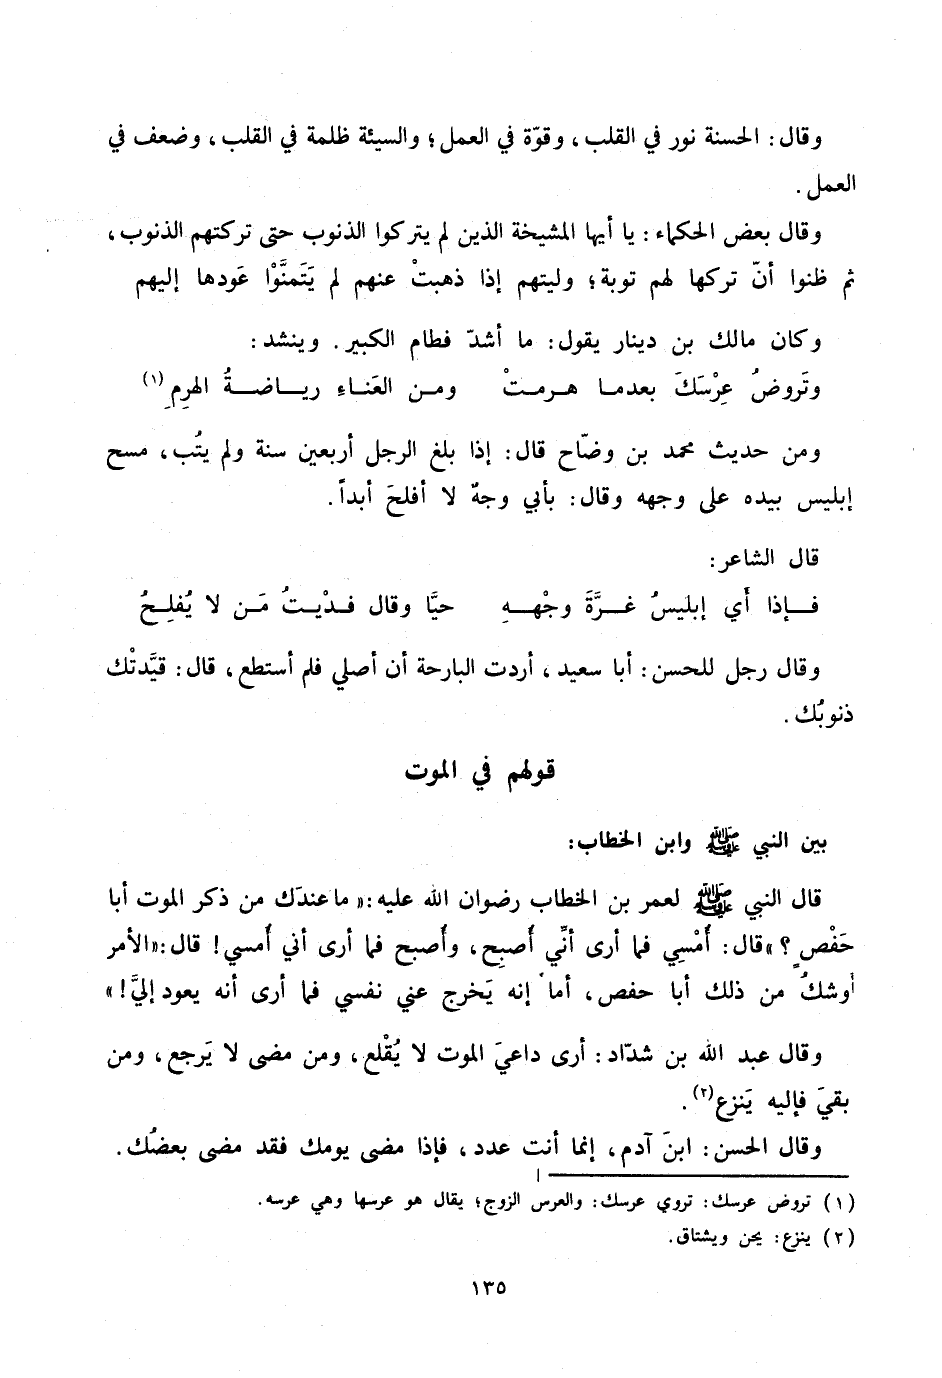 وقال : الحسنة نور في القلب ، وقوّة في العمل ؛ والسيئة ظلمة في القلب ، وضعف في
العمل .
وقال بعض الحكماء : يا أيها المشيخة الذين لم يتركوا الذنوب حتى تركتهم الذنوب ،
ثم ظنوا أنّ تركها لهم توبة ؛ وليتهم إذا ذهبتْ عنهم لم يَتَمنَّوْا عَودها إليهم
وكان مالك بن دينار يقول : ما أشدّ فطام الكبير . وينشد :
وتَروضُ عِرْسَكَ بعدما هـرمـتْ ومـن العَنـاءِ ريـاضـةُ الهَرِمِ (١)
ومن حديث محمد بن وضّاح قال : إذا بلغ الرجل أربعين سنة ولم يتُب ، مسح
إبليس بيده على وجهه وقال : بأبي وجهٌ لا أفلحَ أبداً .
قال الشاعر :
فـإذا أَي إبليسُ غـرَّةَ وجْهـهِ حيَّا وقال فـدْيـتُ مَـن لا يُفلِـحُ
وقال رجل للحسن : أبا سعيد ، أردت البارحة أن أصلي فلم أستطع ، قال : قيَّدتْك
ذنوبُك .
قولهم في الموت
بين النبي ﷺ وابن الخطاب :
قال النبي ﷺ لعمر بن الخطاب رضوان الله عليه : « ما عندَك من ذكر الموت أبا
حَفْصٍ ؟ » قال : أُمْسِي فما أرى أنِّي أُصبِح ، وأُصبح فما أرى أني أُمسي ! قال : « الأمر
أوشكُ من ذلك أبا حفص ، أما إنه يَخرج عني نفسي فما أرى أنه يعود إليَّ ! »
وقال عبد الله بن شدّاد : أرى داعيَ الموت لا يُقْلع ، ومن مضى لا يَرجع ، ومن
بقيَ فإليه يَنزع (٢) .
وقال الحسن : ابنَ آدم ، إنما أنت عدد ، فإذا مضى يومك فقد مضى بعضُك .
(١) تروض عرسك : تروي عرسك : والعرس الزوج ؛ يقال هو عرسها وهي عرسه .
(٢) ينزع : يحن ويشتاق .
١٣٥